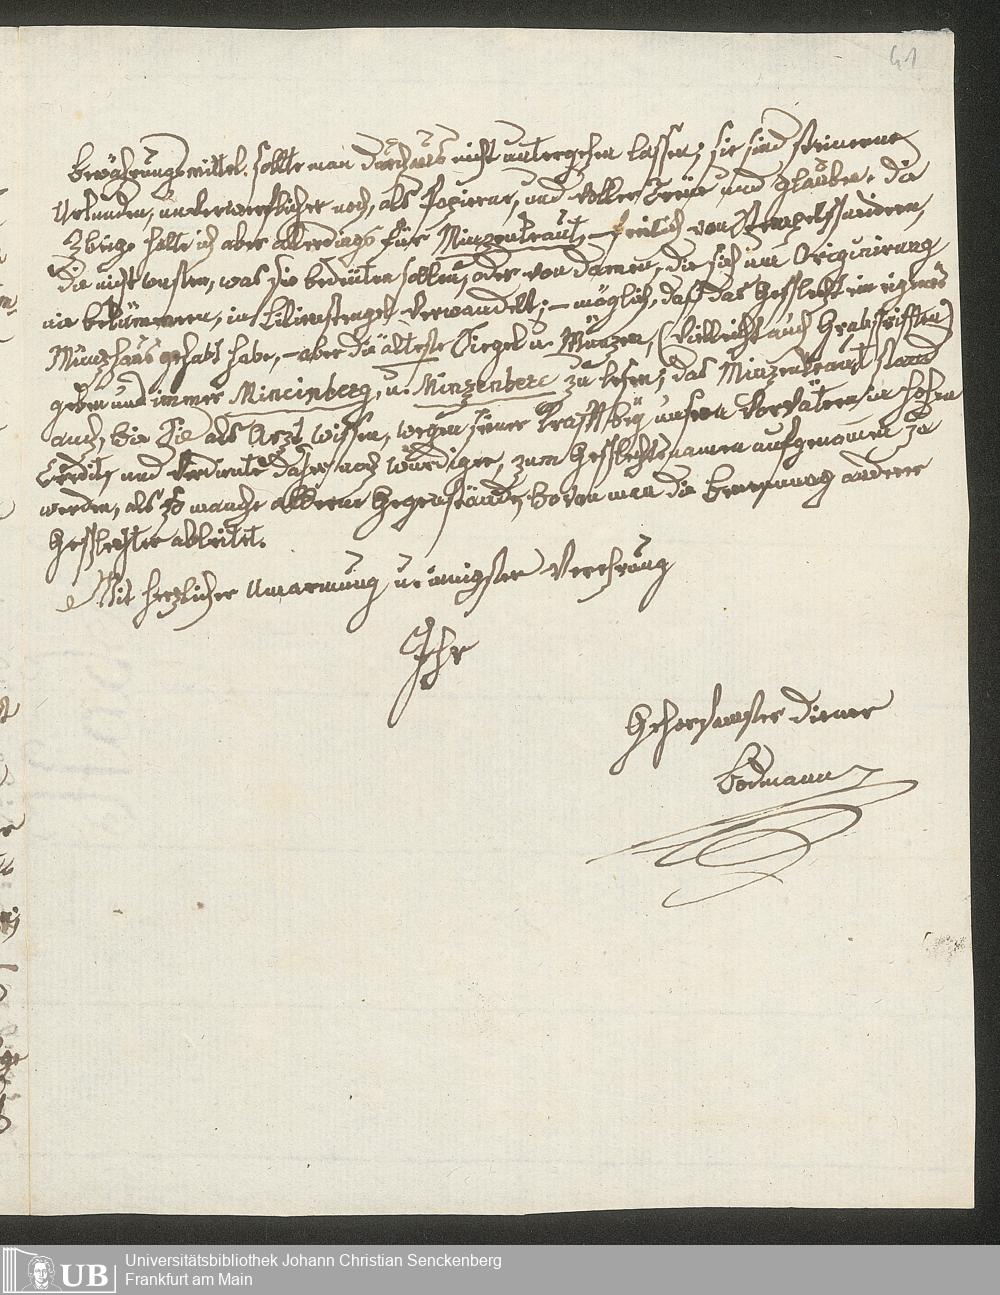 41
bewährungsmittel sollte man durchaus nicht untergehen lassen; sie sind steinerne
Urkunden, unverwerflicher noch, als Papierne, und voller Treue und Glauben. die
Zweige halte ich aber allerdings für Münzenkraut, – freilich von Stempelschneidern,
die nicht wusten, was sie bedeuten sollen, oder von damen, die sich um Originirung
nie bekümmern, in Lilienstengel verwandelt; – möglich, daß das Geschlecht ein eigenes
Münzhaus gehabt habe, – aber die älteste Siegel u. Münzen, (vielleicht auch Grabschrifften)
geben uns immer Mincinberg, u. Minzenberc zu lesen; das Münzenkraut stand
auch, wie Sie als Arzt wissen, wegen seiner Krafft bey unsern Vorvätern in hohem
Credite, und verdiente daher noch würdiger, zum Geschlechtsnamen aufgenommen zu
werden, als so manche alberne Gegenstände, wovon man die Benennung anderer
Geschlechter ableitet.
Mit herzlicher Umarmung u. innigster Verehrung
Ihr
Gehorsamster Diener
Bodmann
UB
Universitätsbibliothek Johann Christian Senckenberg
Frankfurt am Main